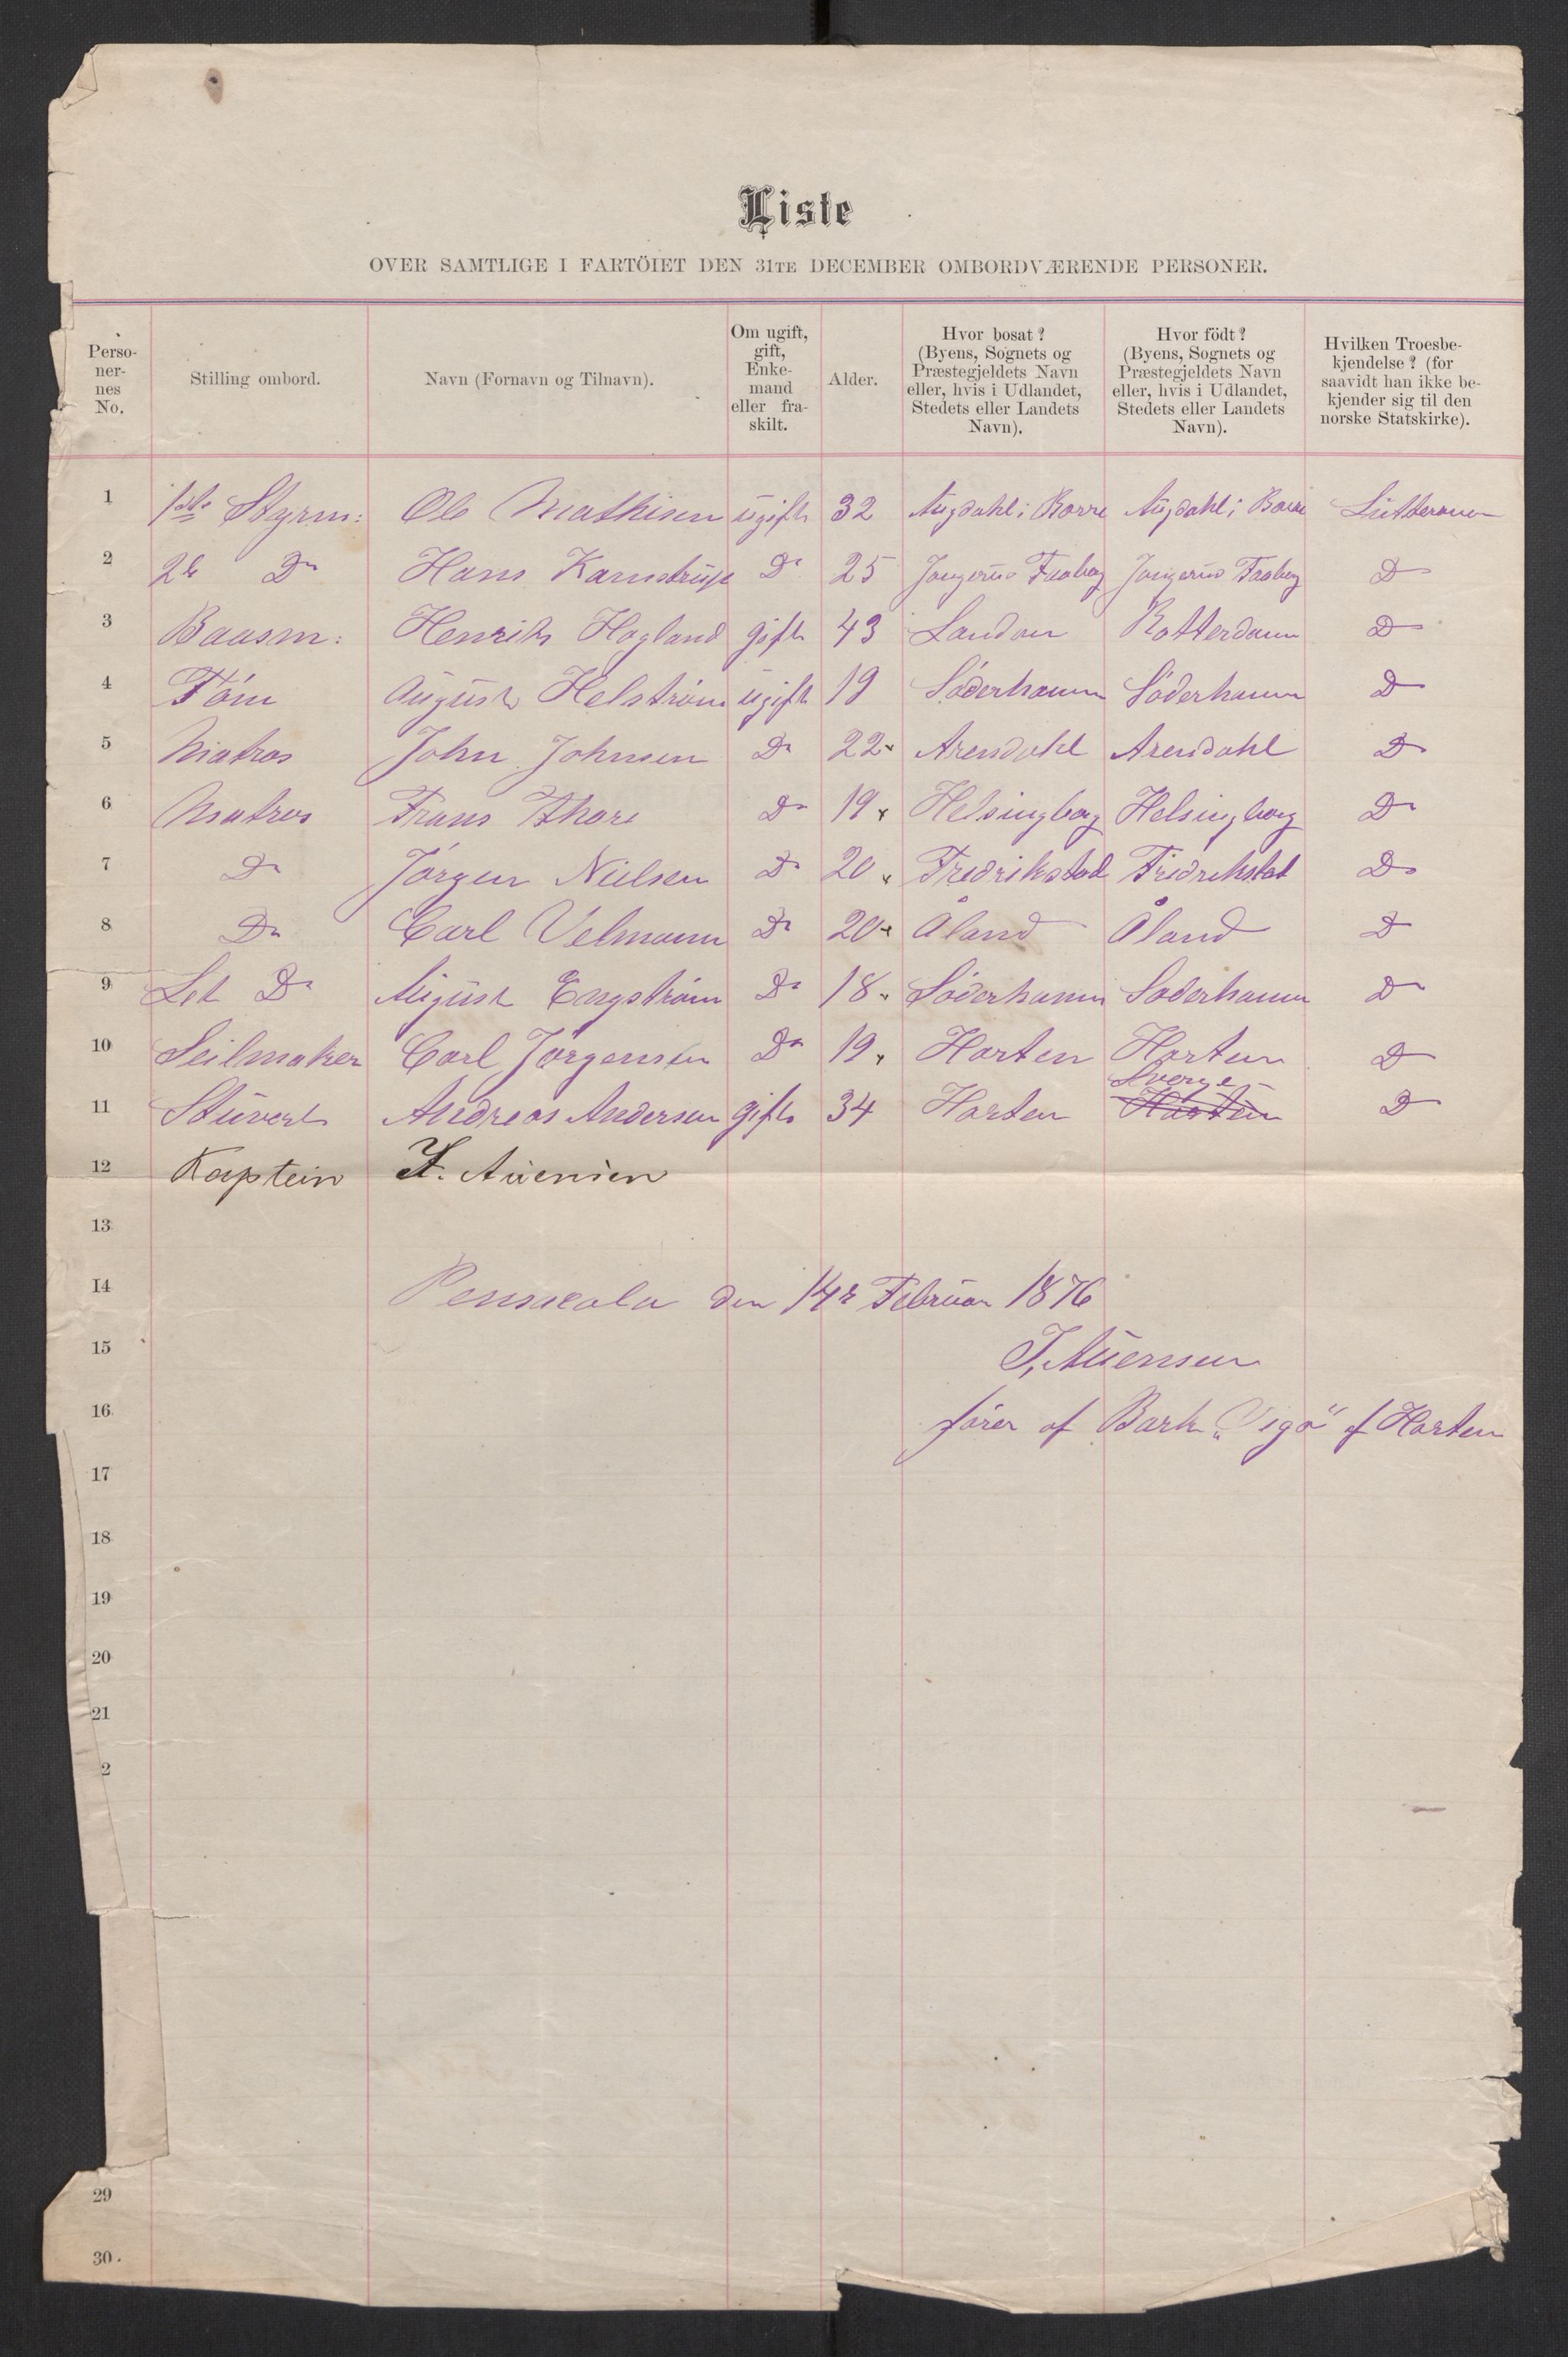 Liste
OVER SAMTLIGE I FARTÖIET DEN 31TE DECEMBER OMBORDVÆRENDE PERSONER.
Perso-
ner-
nes
No.
Stilling ombord.
Navn (Fornavn og Tilnavn).
Om ugift,
gift,
Enke-
mand
eller fra-
skilt.
Alder.
Hvor bosat?
(Byens, Sognets og
Præstegjeldets Navn
eller, hvis i Udlandet,
Stedets eller Landets
Navn).
Hvor födt?
(Byens, Sognets og
Præstegjeldets Navn
eller, hvis i Udlandet,
Stedets eller Landets
Navn).
Hvilken Troesbe-
kjendelse? (for
saavidt han ikke be-
kjender sig til den
norske Statskirke).
1 1ste Styrm: Ole Mathisen ugift 32 Augdahl i Borre Augdahl i Borre
2 2de Do Hans Kamstrup Do 25 Faaberg Faaberg Do
3 Baasm: Henrik Hogland gift 43 London Rotterdam Do
4 Töm August Helström ugift 19 Söderhamn Söderhamn Do
5 Matros John Johnsen Do 22 Arendahl Arendahl Do
6 Matros Frans Thore Do 19 Helsingborg Helsingborg Do
7 Do Jörgen Nielsen Do 20 Fredrikstad Fredrikstad Do
8 Do Carl Velmann Do 20 Åland Åland Do
9 Let Do August Engström Do 18 Söderhamn Söderhamn Do
10 Seilmaker Carl Jörgensen Do 19 Horten Horten Do
Sverge
11 Stuvert Andreas Andersen gift 34 Horten Horten Do
12 Kaptein I. Auensen
13
14 Pensacola den 14de Februar 1876
15 I. Auensen
16 förer af Bark "Vigo" af Horten
17
18
19
20
21
2
29
30